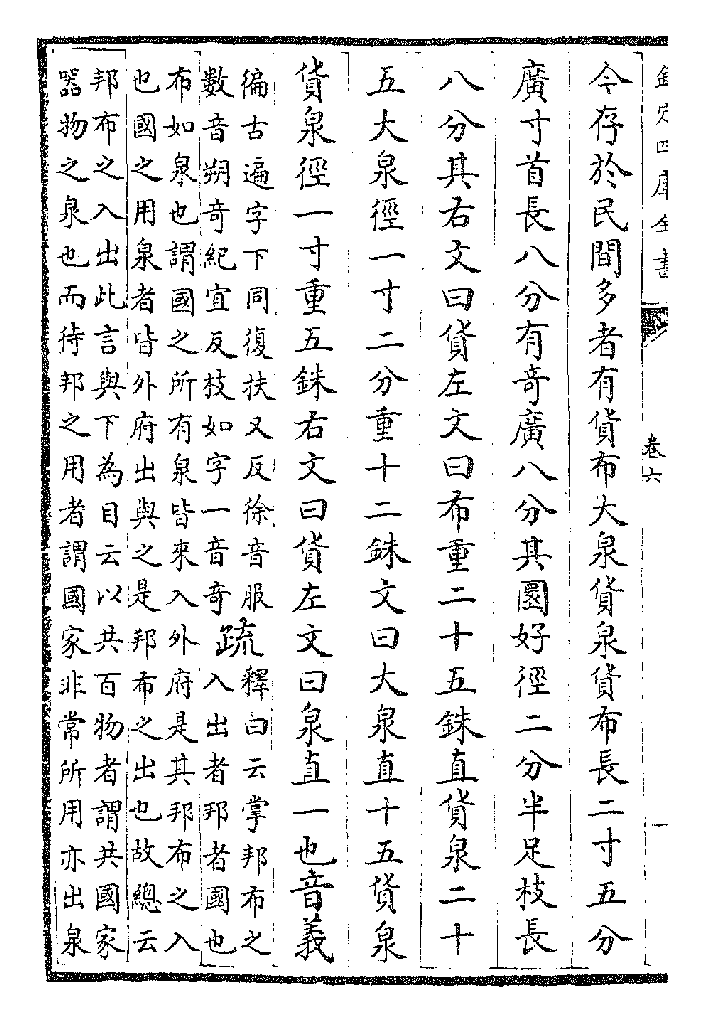 欽定四庫全書
卷六
今存於民間多者有貨布大泉貨泉貨布長二寸五分
廣寸首長八分有奇廣八分其圜好徑二分半足枝長
八分其右文曰貨左文曰布重二十五銖直貨泉二十
五大泉徑一寸二分重十二銖文曰大泉直十五貨泉
貨泉徑一寸重五銖右文曰貨左文曰泉直一也音義
徧古遍字下同復扶又反徐音服
數音朔奇紀宜反枝如字一音奇
疏
釋曰云掌邦布之
入出者邦者國也
布如泉也謂國之所有泉皆來入外府是其邦布之入
也國之用泉者皆外府出與之是邦布之出也故總云
邦布之入出此言與下為目云以共百物者謂共國家
器物之泉也而待邦之用者謂國家非常所用亦出泉